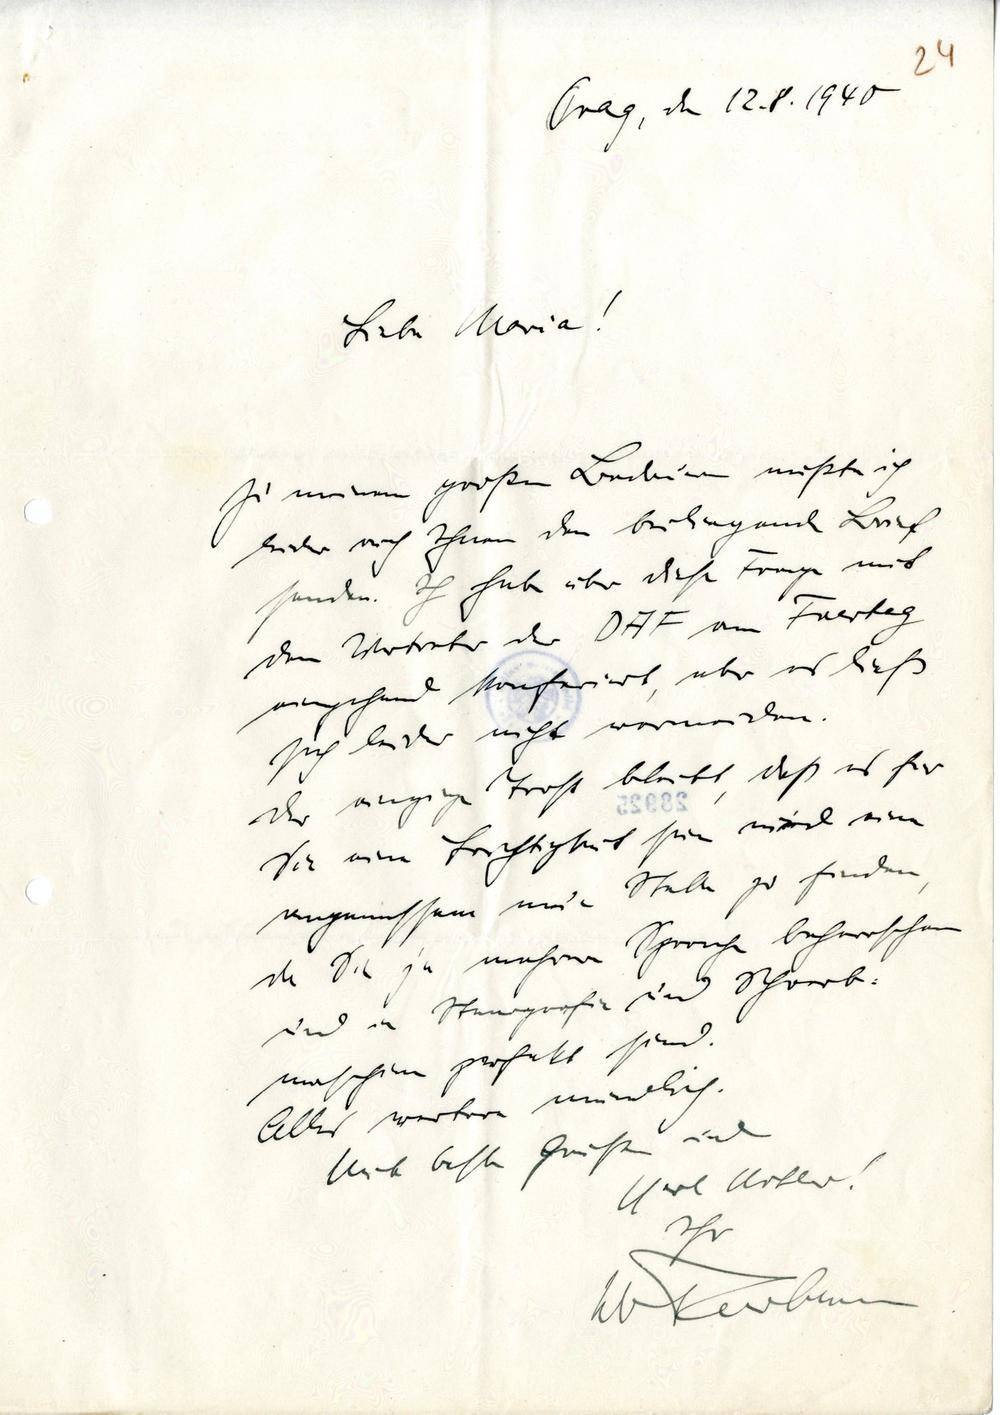 24
Prag, den 12.8.1940
Liebe Maria!
Zu meinem großen Bedauern mußte ich
leider auch Ihnen den beiliegenden Brief
senden. Ich habe über diese Frage mit
dem Vertreter der DAF am Freitag
eingehend konferiert, aber es ließ
sich leider nicht vermeiden.
Der einzige Trost bleibt, daß es für
Sie eine Leichtigkeit sein wird eine
angemessene neue Stelle zu finden,
da Sie ja mehrere Sprachen beherrschen
und in Stenografie und Schreib-
maschine perfekt sind.
Alles weitere mündlich.
Mit besten Grüßen und
Heil Hitler!
Ihr
28925